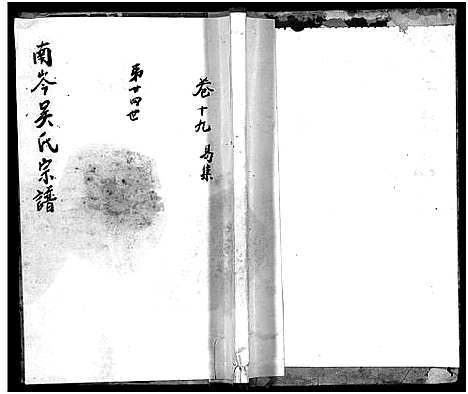 卷十九 易集
第廿四世
南岑吴氏宗譜